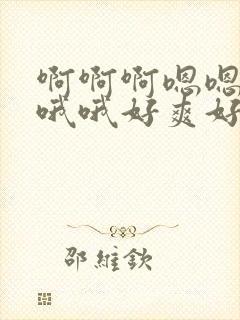 啊啊啊嗯嗯
哦哦好爽好
邵維欽